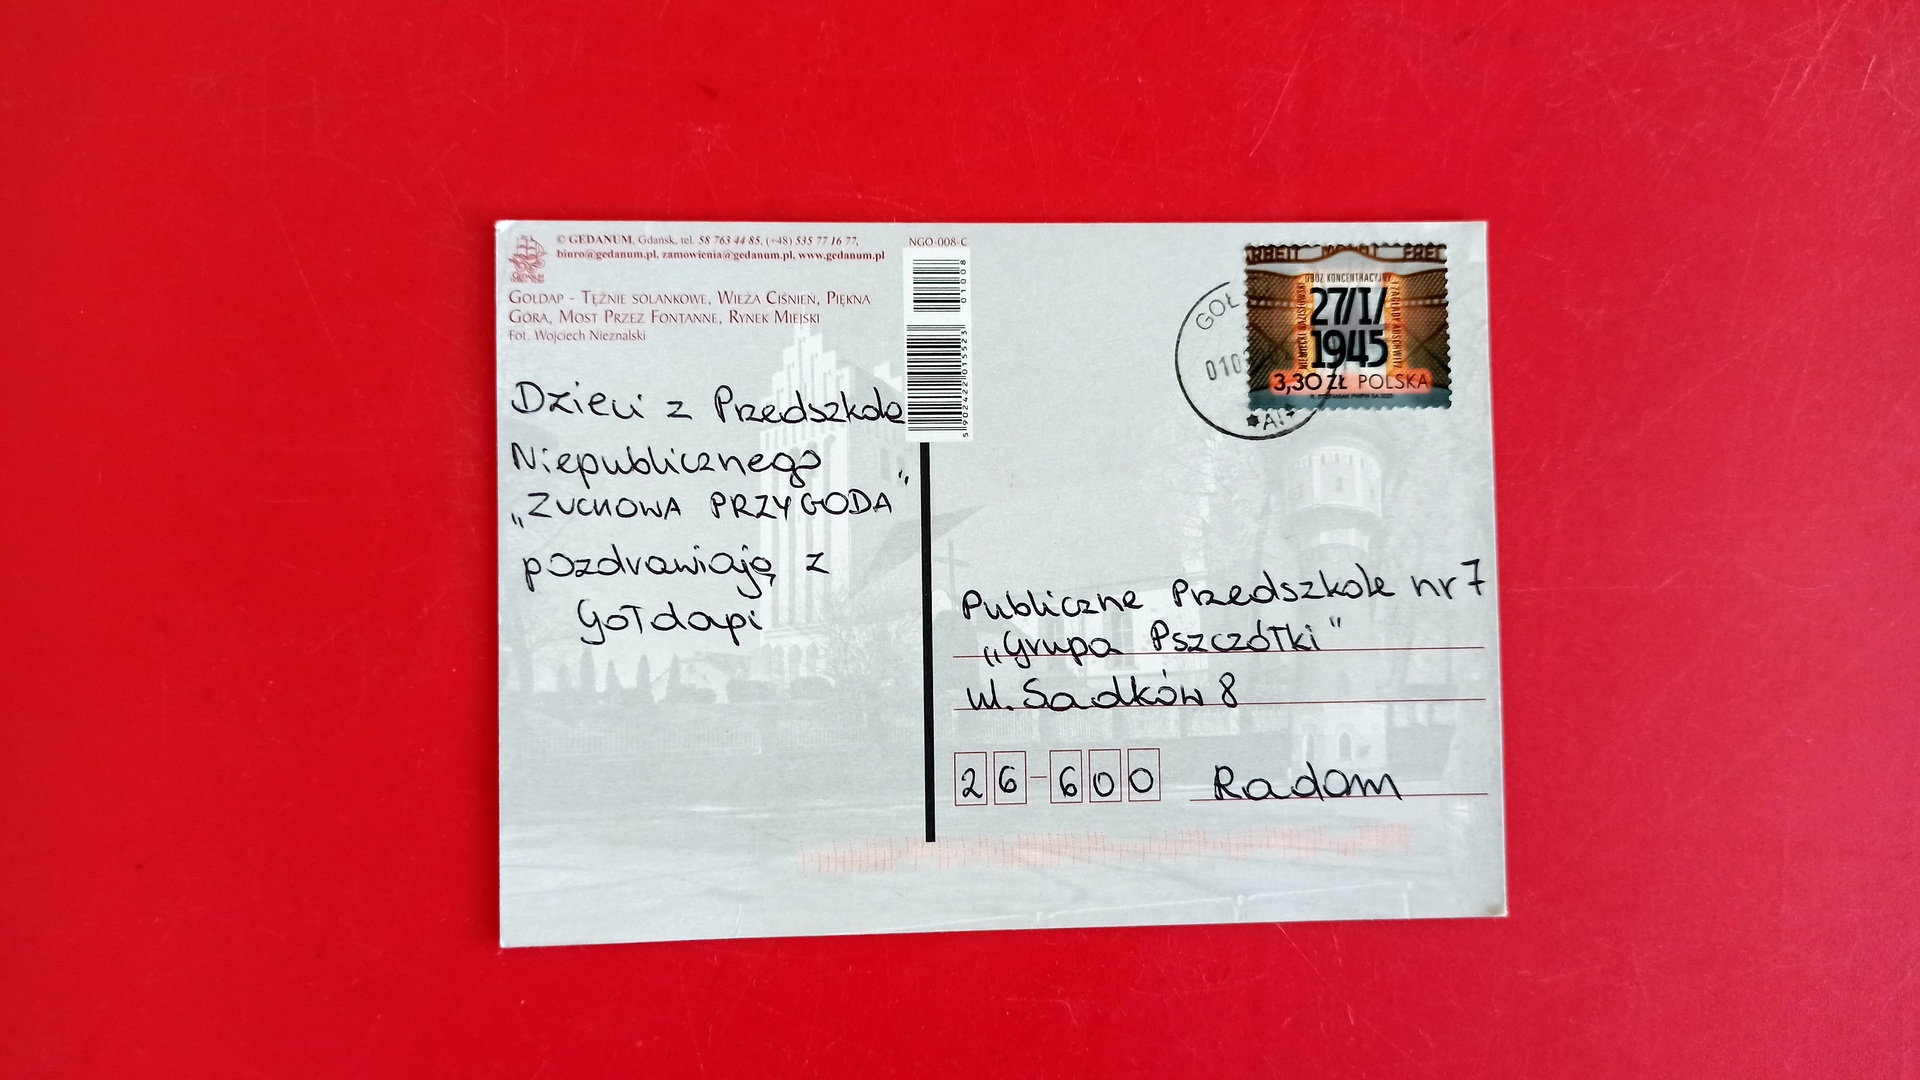 © GEDANUM, Gdańsk, tel. 58 763 44 85, (+48) 535 77 16 77,
biuro@gedanum.pl, zamowienia@gedanum.pl, www.gedanum.pl
GOŁDAP - TĘŻNIE SOLANKOWE, WIEŻA CIŚNIEŃ, PIĘKNA
GÓRA, MOST PRZEZ FONTANNĘ, RYNEK MIEJSKI
Fot. Wojciech Nieznalski
Dzieci z Przedszkola
Niepublicznego
„ZUCHOWA PRZYGODA”
pozdrawiają z
Gołdapi
NGO-008-C
01008
5902422015523
GOŁ
010
ARBEIT MACHT FREI
OBÓZ KONCENTRACYJNY
I ZAGŁADY AUSCHWITZ
27/I/
1945
3,30 ZŁ POLSKA
Publiczne Przedszkole nr 7
„Grupa Pszczółki”
ul. Sadków 8
26-600 Radom